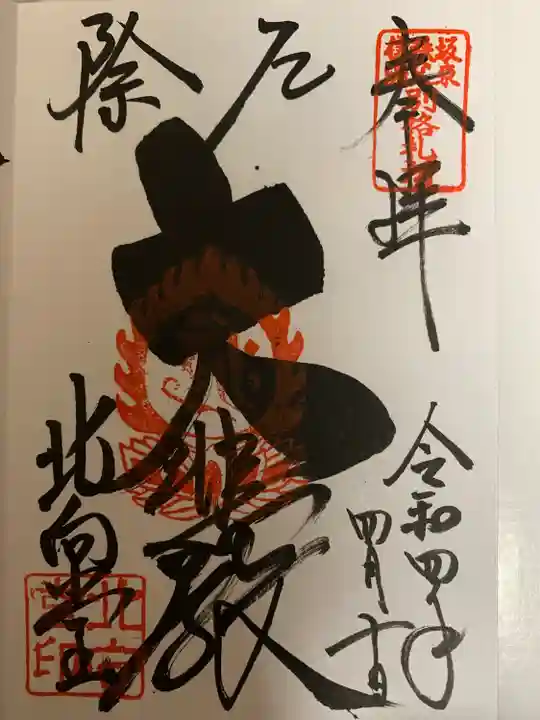 奉拝
坂東
別格札所
令和四年
四月
厄除
大悲殿
北向堂
北向堂印